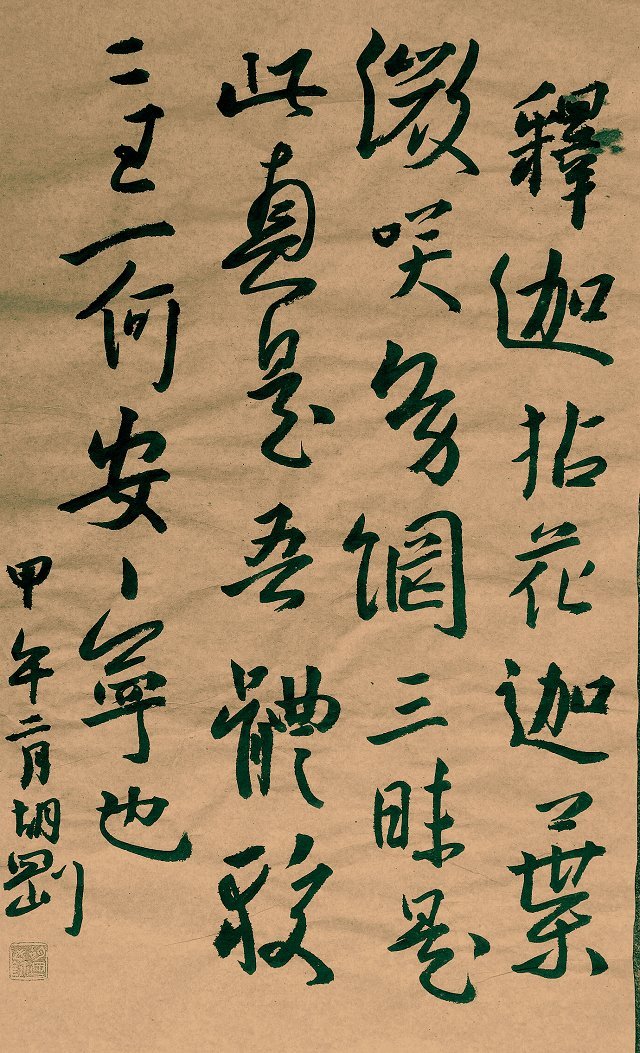 釋迦拈花迦葉
微笑個三昧是
此真是吾體
二主一何安寧也
甲午二月胡剛